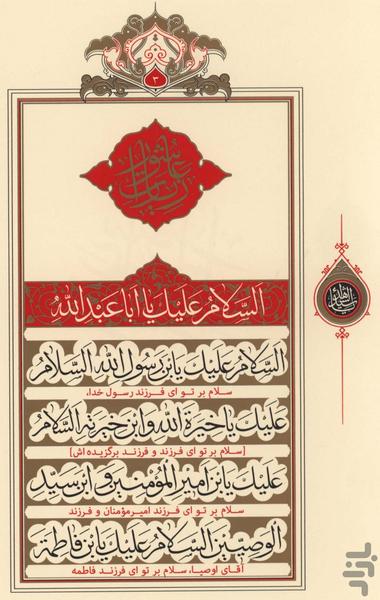 ۳
زیارت عاشورا
اَلسَّلامُ عَلَیْكَ یا اَبا عَبْدِ اللهِ
اَلسَّلامُ عَلَیْكَ یَابْنَ رَسُولِ اللهِ اَلسَّلامُ
سلام بر تو ای فرزند رسول خدا،
عَلَیْكَ یا خِیَرَةَ اللهِ وَابْنَ خِیَرَتِهِ السَّلامُ
[سلام بر تو ای فرزند و فرزند برگزیده اش]
عَلَیْكَ یَابْنَ اَمیرِالْمُؤْمِنینَ وَابْنَ سَیِّدِ
سلام بر تو ای فرزند امیرمؤمنان و فرزند
الْوَصِیّینَ اَلسَّلامُ عَلَیْكَ یَابْنَ فاطِمَةَ
آقای اوصیا، سلام بر تو ای فرزند فاطمه
بازار